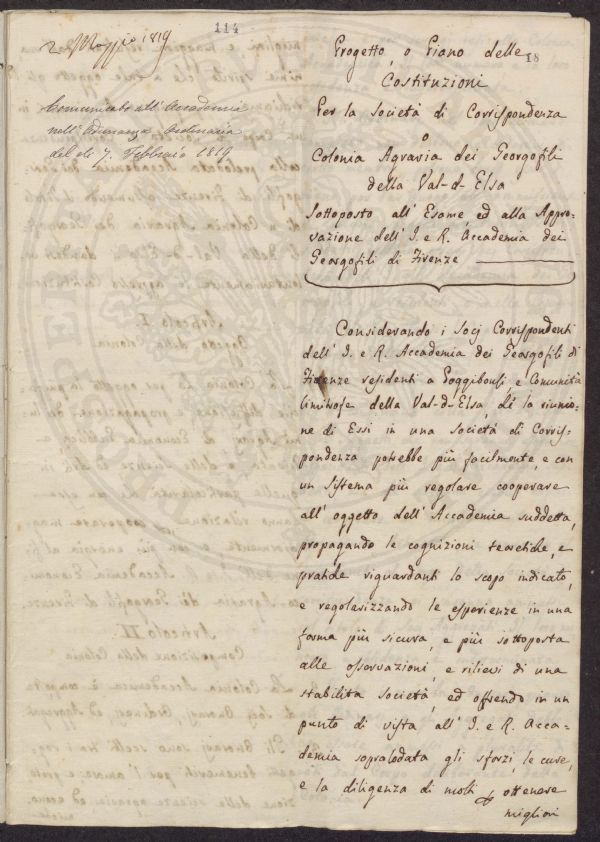 114
2 Maggio 1819
Comunicato all' Accademia
nell' Adunanza Ordinaria
del dì 7. Febbraio 1819
18
Progetto, o Piano delle
Costituzioni
Per la Società di Corrispondenza
o
Colonia Agraria dei Georgofili
della Val-d-Elsa
Sottoposto all' Esame, ed alla Appro-
vazione dell' I. e R. Accademia dei
Georgofili di Firenze
Considerando i Socj Corrispondenti
dell' I. e R. Accademia dei Georgofili di
Firenze residenti a Poggibonsi, e Comunità
limitrofe della Val-d-Elsa, che la riunio-
ne di Essi in una Società di Corris-
pondenza potrebbe più facilmente, e con
un sistema più regolare cooperare
all' oggetto dell' Accademia suddetta,
propagando le cognizioni teoretiche, e
pratiche riguardanti lo scopo indicato,
e regolarizzando le esperienze in una
forma più sicura, e più sottoposta
alle osservazioni, e rilievi di una
stabilita società, ed offrendo in un
punto di vista all' I. e R. Acca-
demia sopralodata gli sforzi, le cure,
e la diligenza di molti p ottenere
migliori